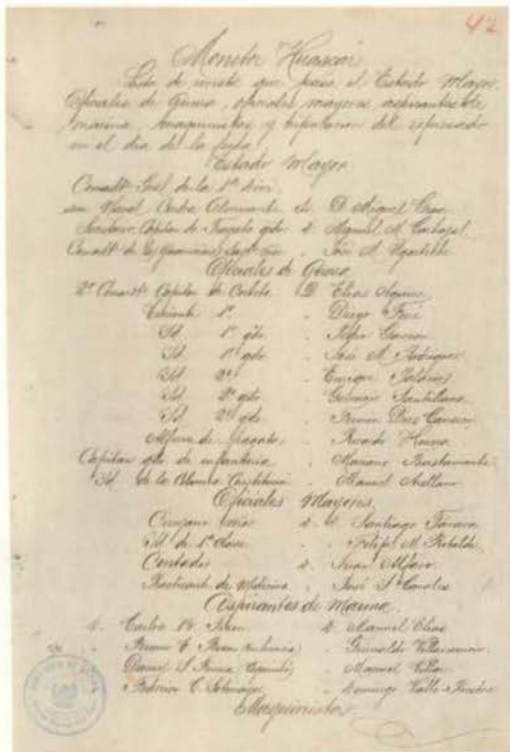 42
Monitor Huascar
Lista de revista que pasa el Estado Mayor,
Oficiales de Guerra, oficiales mayores, aspirantes de
marina, maquinistas y tripulacion del expresado
en el dia de la fecha
Estado Mayor
Comandte Gral de la 1ª divn
Naval Contra Almirante D. Miguel Grau
Capitan de Fragata gdo Manuel M. Carbajal
Comandte de la Guarnicion José M. Ugarteche
Oficiales de Guerra
2º Comandte Capitan de Corbeta D Elias Aguirre
Teniente 1º Diego Ferré
Id 1º gdo Pedro Garezon
Id 1º gdo José M. Rodriguez
Id 2º Enrique Palacios
Id 2º gdo Gervacio Santillana
Id 2º gdo Fermin Diez Canseco
Alferez de fragata Ricardo Herrera
Capitan gdo de infanteria Mariano Bustamante
Id de la Columna Constitucion Manuel Arellano
Oficiales Mayores
Cirujano mayor Santiago Tavara
Id de 1ª clase Felipe M. Rotalde
Contador Juan Alfaro
Practicante de Medicina José I. Canales
Aspirantes de Marina
Carlos B. Manuel Elias
Grimaldo Villavicencio
Manuel Villar
Federico C. Sotomayor Domingo Valle Riestra
Maquinistas